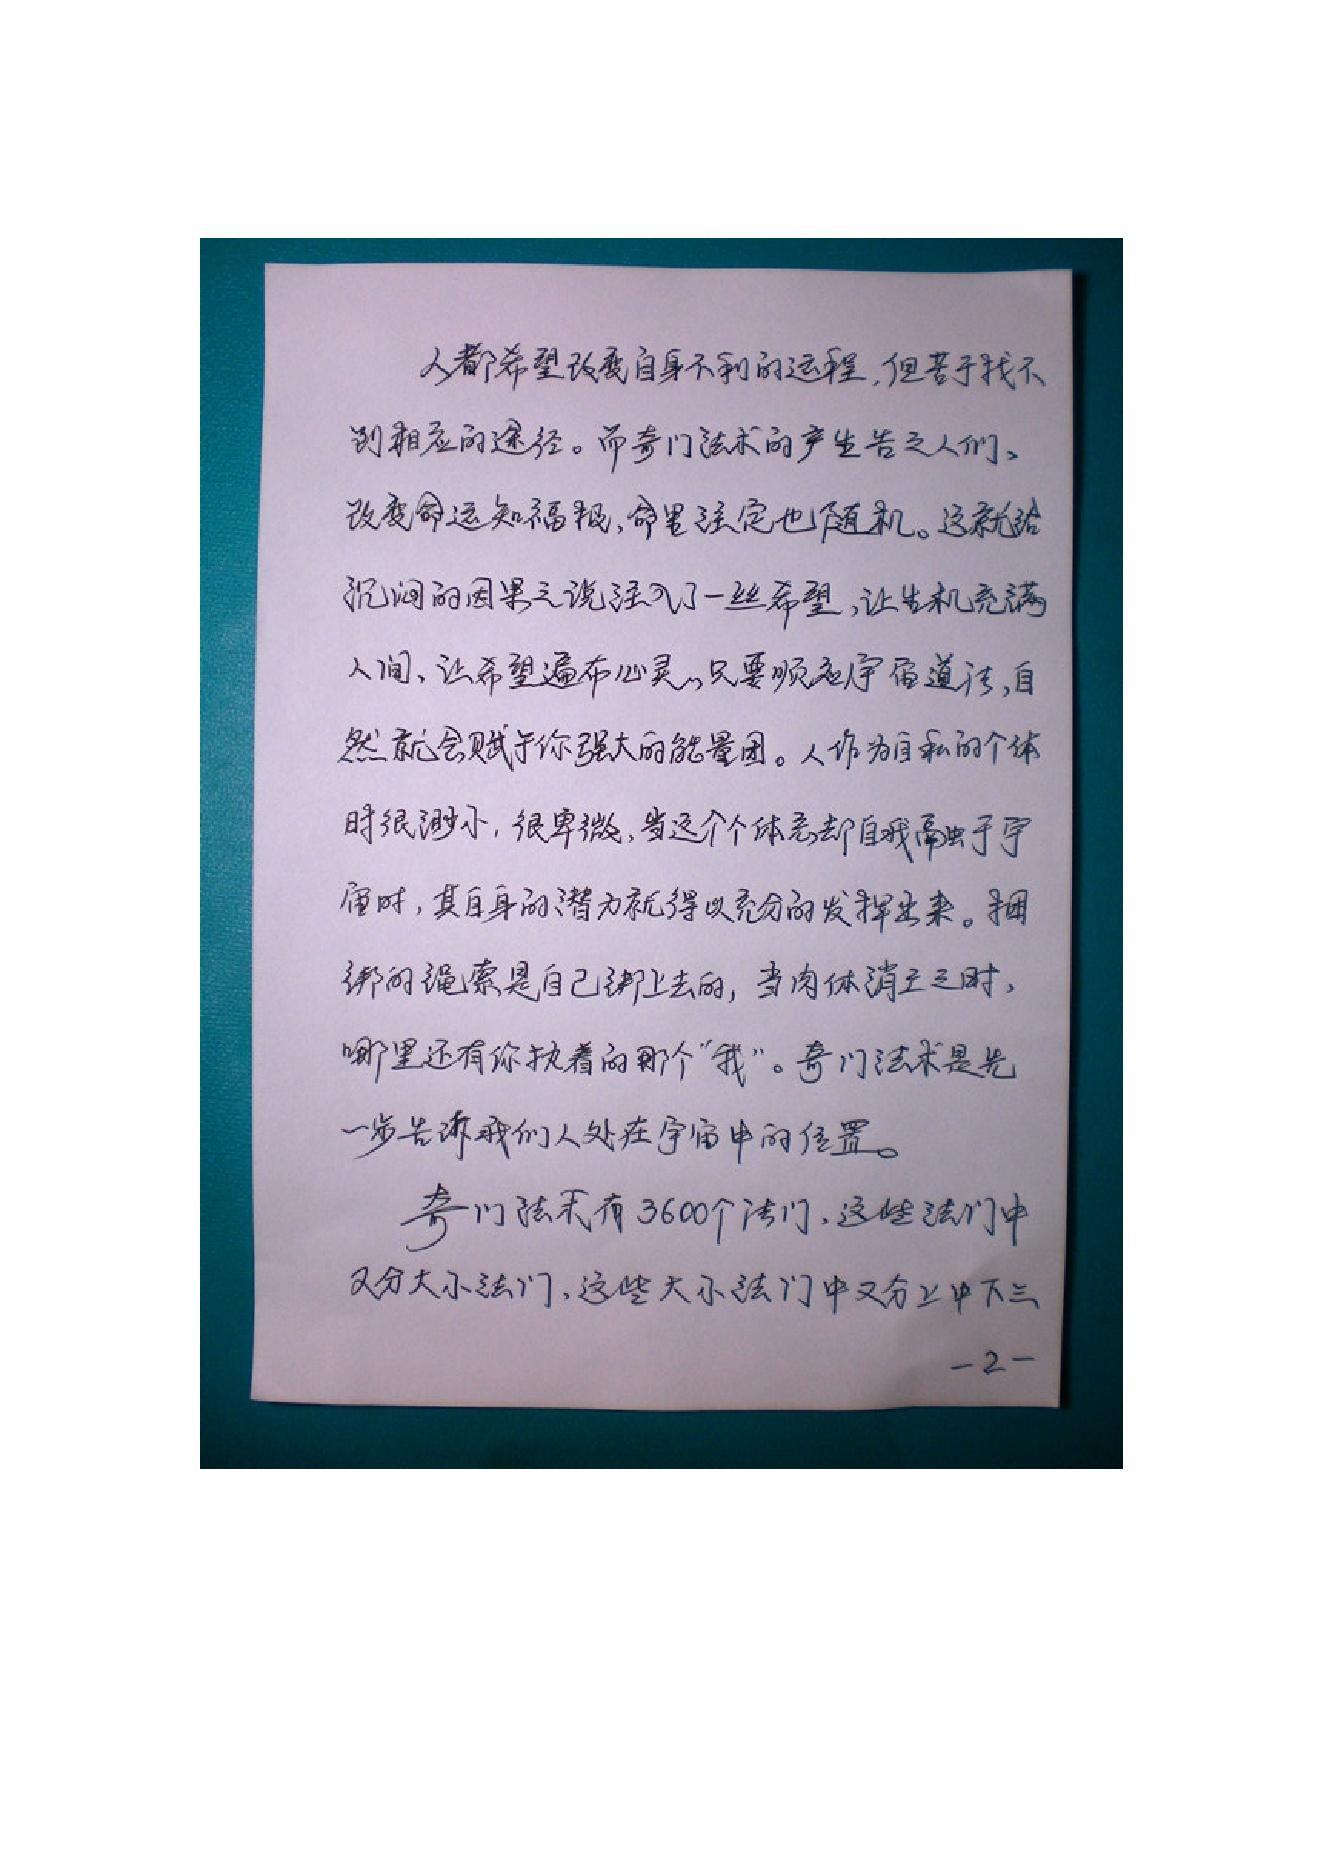 人都希望改变自身不利的运程,但苦于找不
到相应的途径。而奇门法术的产生告之人们、
改变命运知福报,命里注定也随机。这就给
沉闷的因果之说注入了一丝希望,让生机充满
人间、让希望遍布心灵,只要顺应宇宙道法,自
然就会赋于你强大的能量团。人作为自私的个体
时很渺小,很卑微,当这个个体忘却自我融于宇
宙时,其自身的潜力就得以充分的发挥出来。捆
绑的绳索是自己绑上去的,当肉体消亡之时,
哪里还有你执着的那个"我"。奇门法术是先
一步告诉我们人处在宇宙中的位置。
奇门法术有3600个法门,这些法门中
又分大小法门,这些大小法门中又分上中下三
-2-